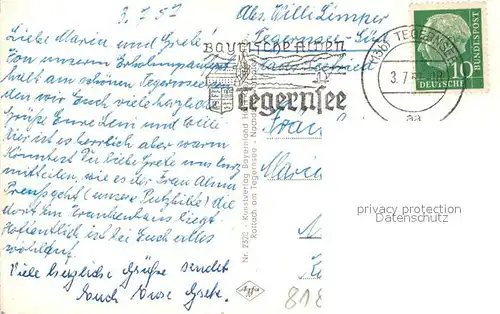 3.7.57
Liebe Maria und Grete!
Von unserem Erholungsaufent-
halt am schönen Tegernsee sen-
den wir Euch viele herzliche
Grüße Eure Leni und Willi
Hier ist es herrlich aber warm
Könntest Du liebe Grete uns kurz
mitteilen, wie es der Frau Alma
geht (unsere Putzhilfe) die
dort im Krankenhaus liegt
Hoffentlich ist bei Euch alles
wohlauf
Viele herzliche Grüße sendet
Euch Eure Grete.
Abs. Willi
Tegernsee-Süd
Bayrische Alpen
Tegernsee
(13b) TEGERNSEE
3.7.57
aa
10
DEUTSCHE
BUNDESPOST
Nr. 2530 - Kunstverlag Bayernland
Rottach am Tegernsee
Agfa
818
privacy protection
Datenschutz